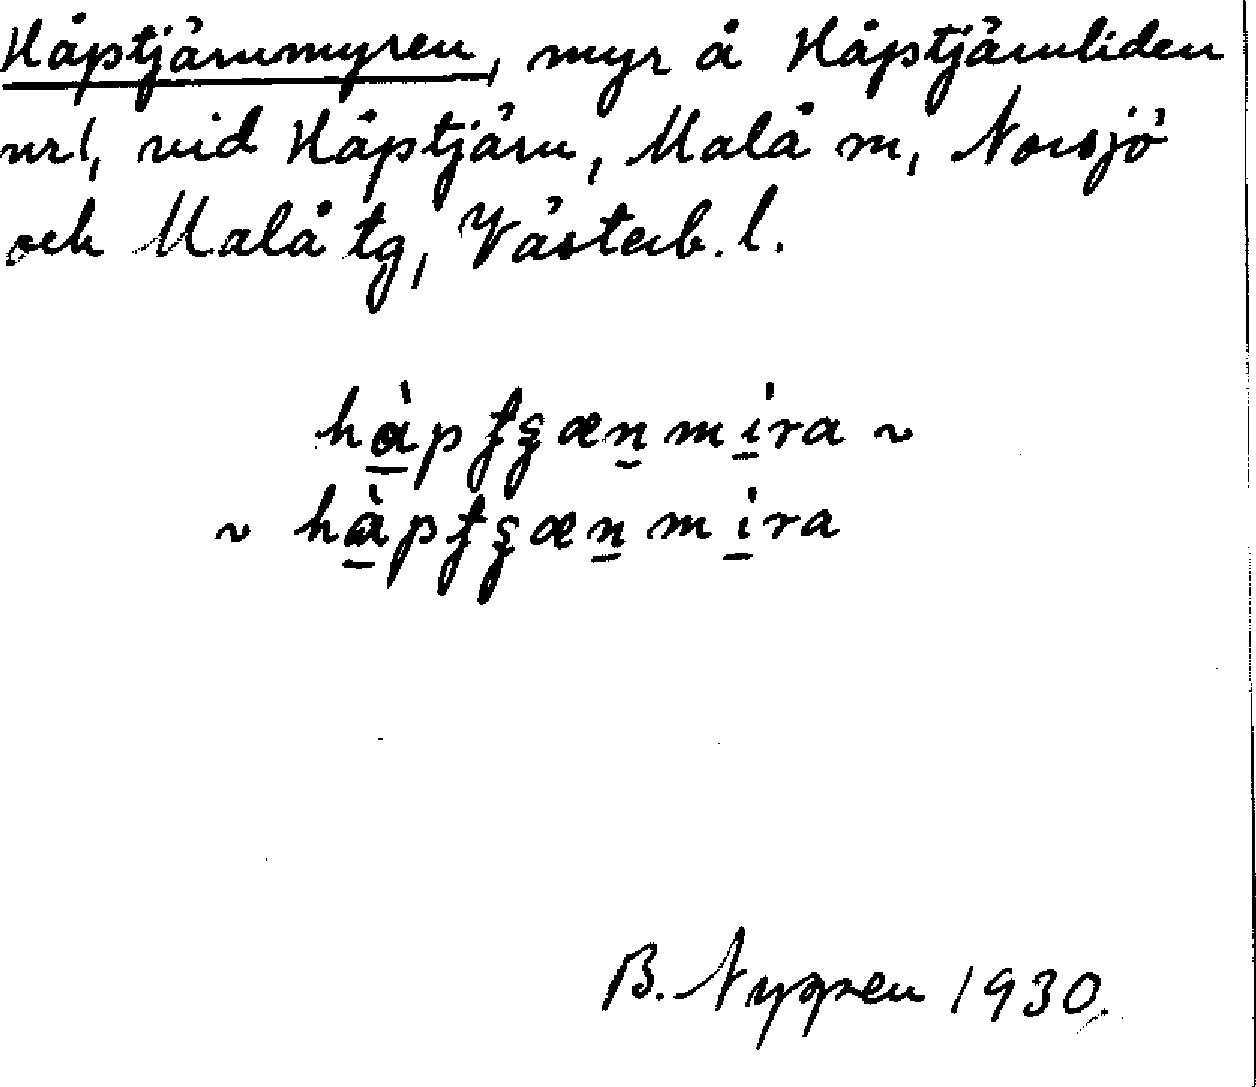 Håptjärnmyren, myr å Håptjärnliden
nr1, vid Håptjärn, Malå m, Norsjö
och Malå tg, Västerb. l.
B. Nygren 1930.